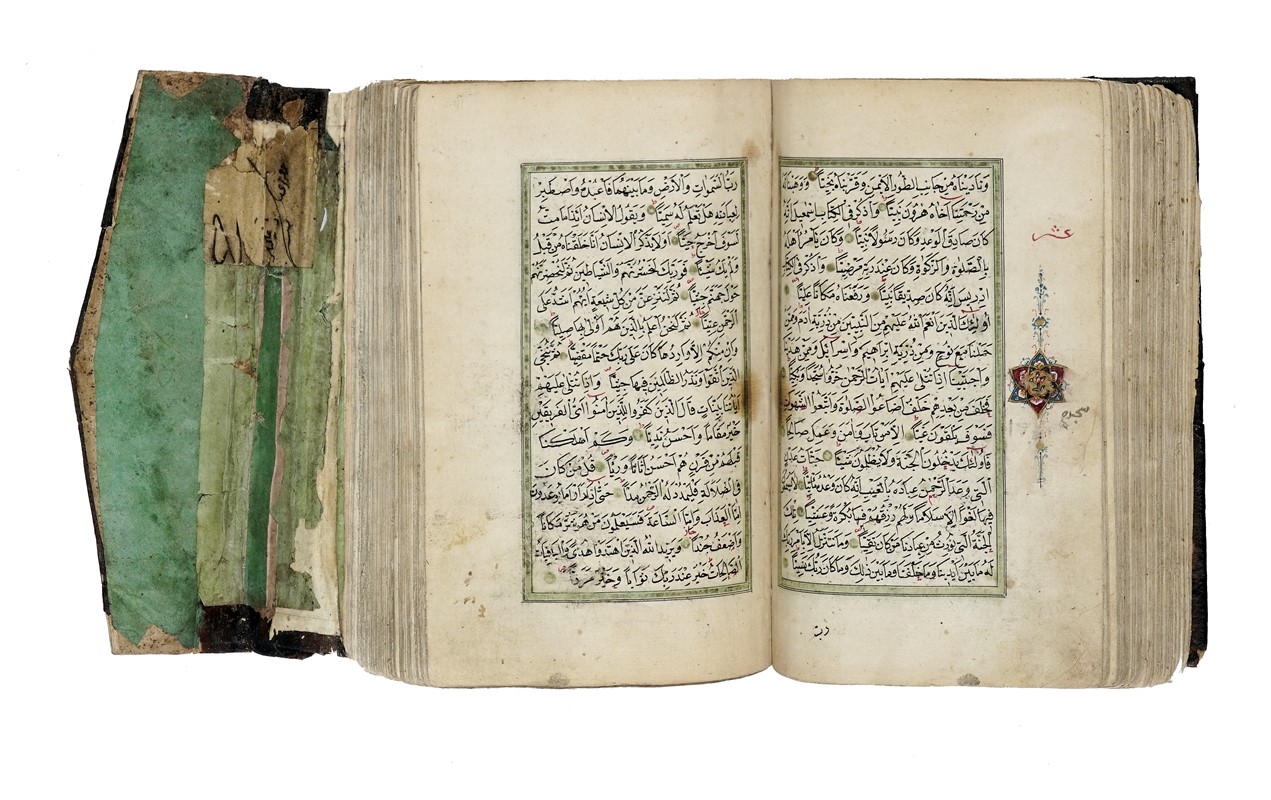 وَنَادَيْنَاهُ مِنْ جَانِبِ الطُّورِ الْاَيْمَنِ وَقَرَّبْنَاهُ نَجِيًّا وَوَهَبْنَا لَهُ
مِنْ رَحْمَتِنَا اَخَاهُ هٰرُونَ نَبِيًّا وَاذْكُرْ فِي الْكِتَابِ اِسْمٰعِيلَ اِنَّهُ
كَانَ صَادِقَ الْوَعْدِ وَكَانَ رَسُولًا نَبِيًّا وَكَانَ يَأْمُرُ اَهْلَهُ
بِالصَّلٰوةِ وَالزَّكٰوةِ وَكَانَ عِنْدَ رَبِّهِ مَرْضِيًّا وَاذْكُرْ فِي الْكِتَابِ
اِدْرِيسَ اِنَّهُ كَانَ صِدِّيقًا نَبِيًّا وَرَفَعْنَاهُ مَكَانًا عَلِيًّا
اُولٰئِكَ الَّذِينَ اَنْعَمَ اللّٰهُ عَلَيْهِمْ مِنَ النَّبِيِّينَ مِنْ ذُرِّيَّةِ اٰدَمَ وَمِمَّنْ
حَمَلْنَا مَعَ نُوحٍ وَمِنْ ذُرِّيَّةِ اِبْرَاهِيمَ وَاِسْرَائِيلَ وَمِمَّنْ هَدَيْنَا
وَاجْتَبَيْنَا اِذَا تُتْلٰى عَلَيْهِمْ اٰيَاتُ الرَّحْمٰنِ خَرُّوا سُجَّدًا وَبُكِيًّا
فَخَلَفَ مِنْ بَعْدِهِمْ خَلْفٌ اَضَاعُوا الصَّلٰوةَ وَاتَّبَعُوا الشَّهَوَاتِ
فَسَوْفَ يَلْقَوْنَ غَيًّا اِلَّا مَنْ تَابَ وَاٰمَنَ وَعَمِلَ صَالِحًا
فَاُولٰئِكَ يَدْخُلُونَ الْجَنَّةَ وَلَا يُظْلَمُونَ شَيْئًا جَنَّاتِ عَدْنٍ
الَّتِي وَعَدَ الرَّحْمٰنُ عِبَادَهُ بِالْغَيْبِ اِنَّهُ كَانَ وَعْدُهُ مَأْتِيًّا لَا يَسْمَعُونَ
فِيهَا لَغْوًا اِلَّا سَلَامًا وَلَهُمْ رِزْقُهُمْ فِيهَا بُكْرَةً وَعَشِيًّا تِلْكَ
الْجَنَّةُ الَّتِي نُورِثُ مِنْ عِبَادِنَا مَنْ كَانَ تَقِيًّا وَمَا نَتَنَزَّلُ اِلَّا بِاَمْرِ رَبِّكَ
لَهُ مَا بَيْنَ اَيْدِينَا وَمَا خَلْفَنَا وَمَا بَيْنَ ذٰلِكَ وَمَا كَانَ رَبُّكَ نَسِيًّا
رب
عشر
سجده
رَبُّ السَّمٰوَاتِ وَالْاَرْضِ وَمَا بَيْنَهُمَا فَاعْبُدْهُ وَاصْطَبِرْ
لِعِبَادَتِهِ هَلْ تَعْلَمُ لَهُ سَمِيًّا وَيَقُولُ الْاِنْسَانُ اَئِذَا مَا مِتُّ
لَسَوْفَ اُخْرَجُ حَيًّا اَوَلَا يَذْكُرُ الْاِنْسَانُ اَنَّا خَلَقْنَاهُ مِنْ قَبْلُ
وَلَمْ يَكُ شَيْئًا فَوَرَبِّكَ لَنَحْشُرَنَّهُمْ وَالشَّيَاطِينَ ثُمَّ لَنُحْضِرَنَّهُمْ
حَوْلَ جَهَنَّمَ جِثِيًّا ثُمَّ لَنَنْزِعَنَّ مِنْ كُلِّ شِيعَةٍ اَيُّهُمْ اَشَدُّ عَلَى
الرَّحْمٰنِ عِتِيًّا ثُمَّ لَنَحْنُ اَعْلَمُ بِالَّذِينَ هُمْ اَوْلٰى بِهَا صِلِيًّا
وَاِنْ مِنْكُمْ اِلَّا وَارِدُهَا كَانَ عَلٰى رَبِّكَ حَتْمًا مَقْضِيًّا ثُمَّ نُنَجِّي
الَّذِينَ اتَّقَوْا وَنَذَرُ الظَّالِمِينَ فِيهَا جِثِيًّا وَاِذَا تُتْلٰى عَلَيْهِمْ
اٰيَاتُنَا بَيِّنَاتٍ قَالَ الَّذِينَ كَفَرُوا لِلَّذِينَ اٰمَنُوا اَيُّ الْفَرِيقَيْنِ
خَيْرٌ مَقَامًا وَاَحْسَنُ نَدِيًّا وَكَمْ اَهْلَكْنَا
قَبْلَهُمْ مِنْ قَرْنٍ هُمْ اَحْسَنُ اَثَاثًا وَرِئْيًا قُلْ مَنْ كَانَ
فِي الضَّلَالَةِ فَلْيَمْدُدْ لَهُ الرَّحْمٰنُ مَدًّا حَتّٰى اِذَا رَاَوْا مَا يُوعَدُونَ
اِمَّا الْعَذَابَ وَاِمَّا السَّاعَةَ فَسَيَعْلَمُونَ مَنْ هُوَ شَرٌّ مَكَانًا
وَاَضْعَفُ جُنْدًا وَيَزِيدُ اللّٰهُ الَّذِينَ اهْتَدَوْا هُدًى وَالْبَاقِيَاتُ
الصَّالِحَاتُ خَيْرٌ عِنْدَ رَبِّكَ ثَوَابًا وَخَيْرٌ مَرَدًّا